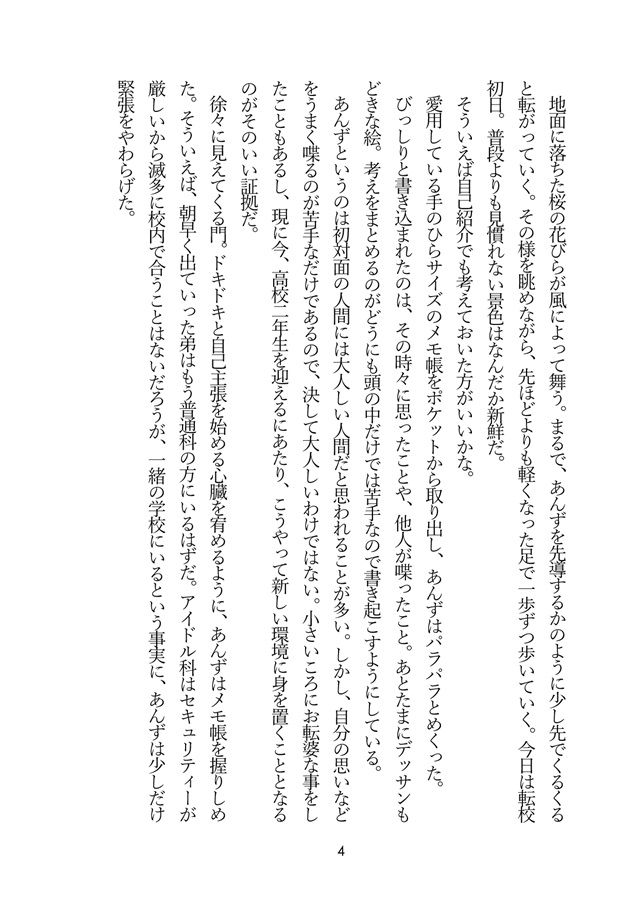 地面に落ちた桜の花びらが風によって舞う。まるで、あんずを先導するかのように少し先でくるくる
と転がっていく。その様を眺めながら、先ほどよりも軽くなった足で一歩ずつ歩いていく。今日は転校
初日。普段よりも見慣れない景色はなんだか新鮮だ。
　そういえば自己紹介でも考えておいた方がいいかな。
　愛用している手のひらサイズのメモ帳をポケットから取り出し、あんずはパラパラとめくった。
　びっしりと書き込まれたのは、その時々に思ったことや、他人が喋ったこと。あとたまにデッサンも
どきな絵。考えをまとめるのがどうにも頭の中だけでは苦手なので書き起こすようにしている。
　あんずというのは初対面の人間には大人しい人間だと思われることが多い。しかし、自分の思いなど
をうまく喋るのが苦手なだけであるので、決して大人しいわけではない。小さいころにお転婆な事をし
たこともあるし、現に今、高校二年生を迎えるにあたり、こうやって新しい環境に身を置くこととなる
のがそのいい証拠だ。
　徐々に見えてくる門。ドキドキと自己主張を始める心臓を宥めるように、あんずはメモ帳を握りしめ
た。そういえば、朝早く出ていった弟はもう普通科の方にいるはずだ。アイドル科はセキュリティーが
厳しいから滅多に校内で合うことはないだろうが、一緒の学校にいるという事実に、あんずは少しだけ
緊張をやわらげた。
4